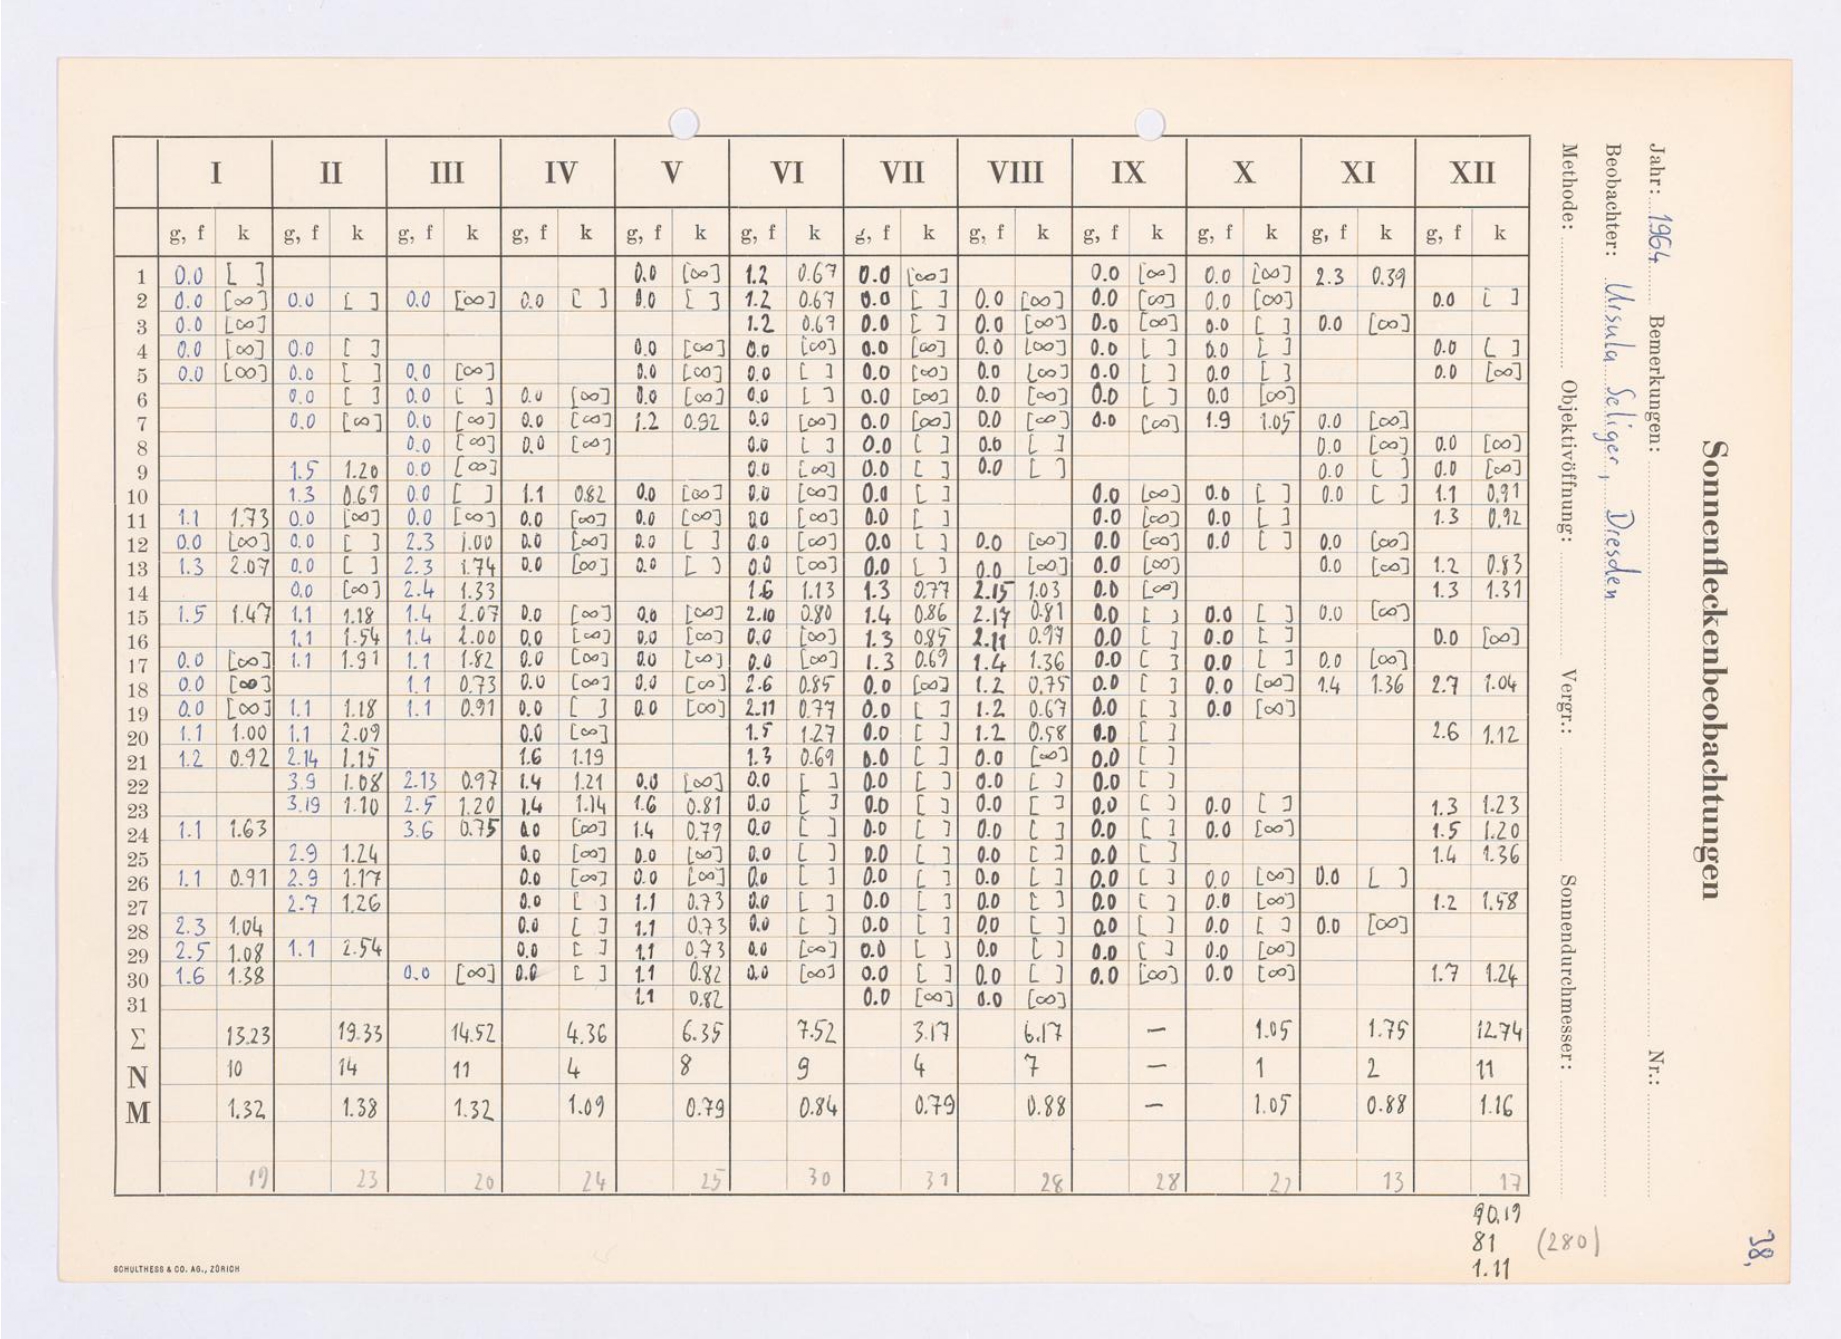 Sonnenfleckenbeobachtungen
Jahr: 1964 Bemerkungen: Nr.:
Beobachter: Ursula Seliger, Dresden
Methode: Objektivöffnung: Vergr.: Sonnendurchmesser:
38,
I II III IV V VI VII VIII IX X XI XII
g, f k g, f k g, f k g, f k g, f k g, f k g, f k g, f k g, f k g, f k g, f k g, f k
1 0.0 [ ] 0.0 [∞] 1.2 0.67 0.0 [∞] 0.0 [∞] 0.0 [∞] 2.3 0.39
2 0.0 [∞] 0.0 [ ] 0.0 [∞] 0.0 [ ] 0.0 [ ] 1.2 0.67 0.0 [ ] 0.0 [∞] 0.0 [∞] 0.0 [∞] 0.0 [ ]
3 0.0 [∞] 1.2 0.67 0.0 [ ] 0.0 [∞] 0.0 [∞] 0.0 [ ] 0.0 [∞]
4 0.0 [∞] 0.0 [ ] 0.0 [∞] 0.0 [∞] 0.0 [∞] 0.0 [∞] 0.0 [ ] 0.0 [ ] 0.0 [ ]
5 0.0 [∞] 0.0 [ ] 0.0 [∞] 0.0 [∞] 0.0 [ ] 0.0 [∞] 0.0 [∞] 0.0 [ ] 0.0 [ ] 0.0 [∞]
6 0.0 [ ] 0.0 [ ] 0.0 [∞] 0.0 [∞] 0.0 [ ] 0.0 [∞] 0.0 [∞] 0.0 [ ] 0.0 [∞]
7 0.0 [∞] 0.0 [∞] 0.0 [∞] 1.2 0.92 0.0 [∞] 0.0 [∞] 0.0 [∞] 0.0 [∞] 1.9 1.05 0.0 [∞]
8 0.0 [∞] 0.0 [∞] 0.0 [ ] 0.0 [ ] 0.0 [ ] 0.0 [∞] 0.0 [∞]
9 1.5 1.20 0.0 [∞] 0.0 [∞] 0.0 [ ] 0.0 [ ] 0.0 [ ] 0.0 [∞]
10 1.3 0.69 0.0 [ ] 1.1 0.82 0.0 [∞] 0.0 [∞] 0.0 [ ] 0.0 [∞] 0.0 [ ] 0.0 [ ] 1.1 0.91
11 1.1 1.73 0.0 [∞] 0.0 [∞] 0.0 [∞] 0.0 [∞] 0.0 [∞] 0.0 [ ] 0.0 [∞] 0.0 [ ] 1.3 0.92
12 0.0 [∞] 0.0 [ ] 2.3 1.00 0.0 [∞] 0.0 [ ] 0.0 [∞] 0.0 [ ] 0.0 [∞] 0.0 [∞] 0.0 [ ] 0.0 [∞]
13 1.3 2.07 0.0 [ ] 2.3 1.74 0.0 [∞] 0.0 [ ] 0.0 [∞] 0.0 [ ] 0.0 [∞] 0.0 [∞] 0.0 [∞] 1.2 0.83
14 0.0 [∞] 2.4 1.33 1.6 1.13 1.3 0.77 2.15 1.03 0.0 [∞] 1.3 1.31
15 1.5 1.47 1.1 1.18 1.4 2.07 0.0 [∞] 0.0 [∞] 2.10 0.80 1.4 0.86 2.17 0.81 0.0 [ ] 0.0 [ ] 0.0 [∞]
16 1.1 1.54 1.4 1.00 0.0 [∞] 0.0 [∞] 0.0 [∞] 1.3 0.85 2.11 0.97 0.0 [ ] 0.0 [ ] 0.0 [∞]
17 0.0 [∞] 1.1 1.91 1.1 1.82 0.0 [∞] 0.0 [∞] 0.0 [∞] 1.3 0.69 1.4 1.36 0.0 [ ] 0.0 [ ] 0.0 [∞]
18 0.0 [∞] 1.1 0.73 0.0 [∞] 0.0 [∞] 2.6 0.85 0.0 [∞] 1.2 0.75 0.0 [ ] 0.0 [∞] 1.4 1.36 2.7 1.04
19 0.0 [∞] 1.1 1.18 1.1 0.91 0.0 [ ] 0.0 [∞] 2.11 0.77 0.0 [ ] 1.2 0.67 0.0 [ ] 0.0 [∞]
20 1.1 1.00 1.1 2.09 0.0 [∞] 1.5 1.27 0.0 [ ] 1.2 0.58 0.0 [ ] 2.6 1.12
21 1.2 0.92 2.14 1.15 1.6 1.19 1.3 0.69 0.0 [ ] 0.0 [∞] 0.0 [ ]
22 3.9 1.08 2.13 0.97 1.4 1.21 0.0 [∞] 0.0 [ ] 0.0 [ ] 0.0 [ ] 0.0 [ ]
23 3.19 1.10 2.5 1.20 1.4 1.14 1.6 0.81 0.0 [ ] 0.0 [ ] 0.0 [ ] 0.0 [ ] 0.0 [ ] 1.3 1.23
24 1.1 1.63 3.6 0.75 0.0 [∞] 1.4 0.79 0.0 [ ] 0.0 [ ] 0.0 [ ] 0.0 [ ] 0.0 [∞] 1.5 1.20
25 2.9 1.24 0.0 [∞] 0.0 [∞] 0.0 [ ] 0.0 [ ] 0.0 [ ] 0.0 [ ] 1.4 1.36
26 1.1 0.91 2.9 1.17 0.0 [∞] 0.0 [∞] 0.0 [ ] 0.0 [ ] 0.0 [ ] 0.0 [ ] 0.0 [∞] 0.0 [ ]
27 2.7 1.26 0.0 [ ] 1.1 0.73 0.0 [ ] 0.0 [ ] 0.0 [ ] 0.0 [ ] 0.0 [∞] 1.2 1.58
28 2.3 1.04 0.0 [ ] 1.1 0.73 0.0 [ ] 0.0 [ ] 0.0 [ ] 0.0 [ ] 0.0 [ ] 0.0 [∞]
29 2.5 1.08 1.1 2.54 0.0 [ ] 1.1 0.73 0.0 [∞] 0.0 [ ] 0.0 [ ] 0.0 [ ] 0.0 [∞]
30 1.6 1.38 0.0 [∞] 0.0 [ ] 1.1 0.82 0.0 [∞] 0.0 [ ] 0.0 [ ] 0.0 [∞] 0.0 [∞] 1.7 1.24
31 1.1 0.82 0.0 [∞] 0.0 [∞]
Σ 13.23 19.33 14.52 4.36 6.35 7.52 3.17 6.17 — 1.05 1.75 12.74
N 10 14 11 4 8 9 4 7 — 1 2 11
M 1.32 1.38 1.32 1.09 0.79 0.84 0.79 0.88 — 1.05 0.88 1.16
19 23 20 24 25 30 31 28 28 22 13 17
90.19
81 (280)
1.11
SCHULTHESS & CO. AG., ZÜRICH